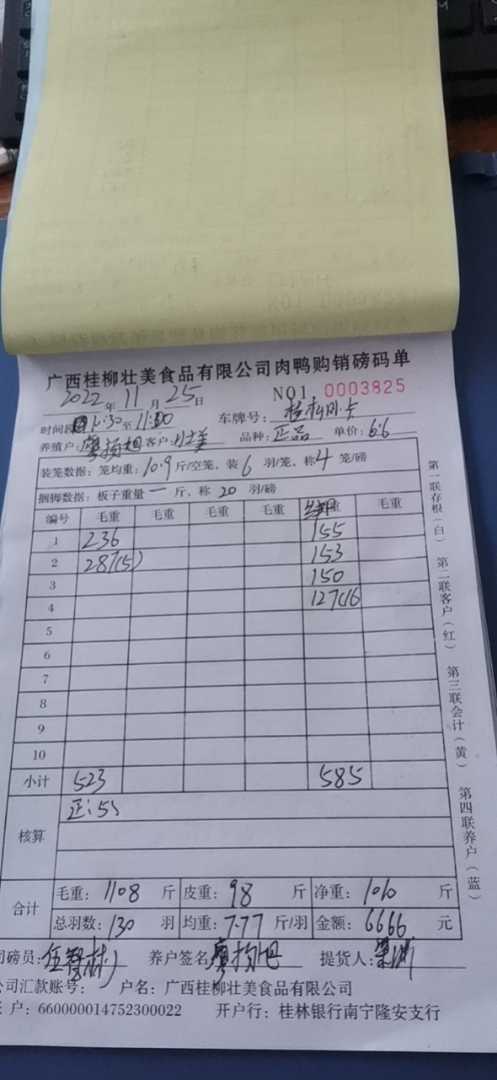 广西桂柳壮美食品有限公司肉鸭购销磅码单
2022年11月25日 NO1 0003825
时间段 至11:00 车牌号：
养殖户： 客户：壮美 品种：正品 单价：6.6
装笼数据：笼均重：10.9斤/空笼，装6羽/笼，称4笼/磅
捆脚数据：板子重量一斤，称20羽/磅
编号 毛重 毛重 毛重 毛重 毛重
1 236 155
2 287(5) 153
3 150
4 127(16
5
6
7
8
9
10
小计 523 585
核算 正：5
合计 毛重：1108斤 皮重：98斤 净重：1010斤
总羽数：130羽 均重：7.77斤/羽 金额：6666元
司磅员： 养户签名： 提货人：
公司汇款账号： 户名：广西桂柳壮美食品有限公司
户：660000014752300022 开户行：桂林银行南宁隆安支行
第一联存根（白） 第二联客户（红） 第三联会计（黄） 第四联养户（蓝）